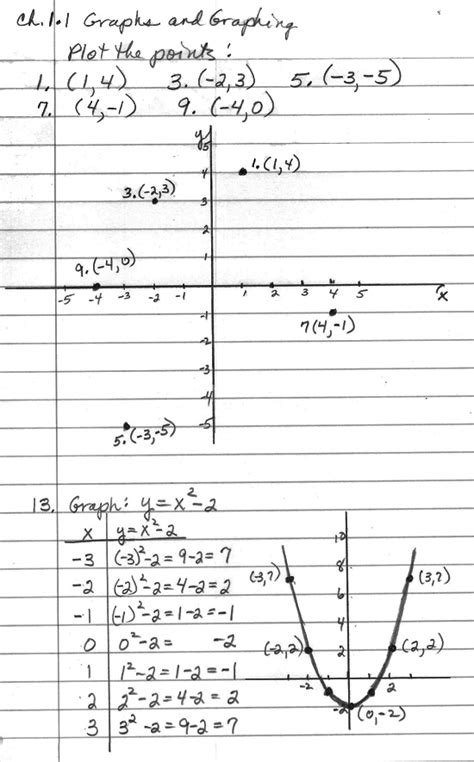 Ch. 1.1 Graphs and Graphing
Plot the points:
1. (1,4) 3. (-2,3) 5. (-3,-5)
7. (4,-1) 9. (-4,0)
y
5
4 1. (1,4)
3. (-2,3) 3
2
9. (-4,0) 1
-5 -4 -3 -2 -1 1 2 3 4 5 x
-1 7 (4,-1)
-2
-3
-4
5. (-3,-5) -5
13. Graph: y = x²-2
x y = x²-2
-3 (-3)²-2 = 9-2 = 7
-2 (-2)²-2 = 4-2 = 2
-1 (-1)²-2 = 1-2 = -1
0 0²-2 = -2
1 1²-2 = 1-2 = -1
2 2²-2 = 4-2 = 2
3 3²-2 = 9-2 = 7
10
8
(-3,7) 6 (3,7)
4
(-2,2) 2 (2,2)
-2 2
-2 (0,-2)